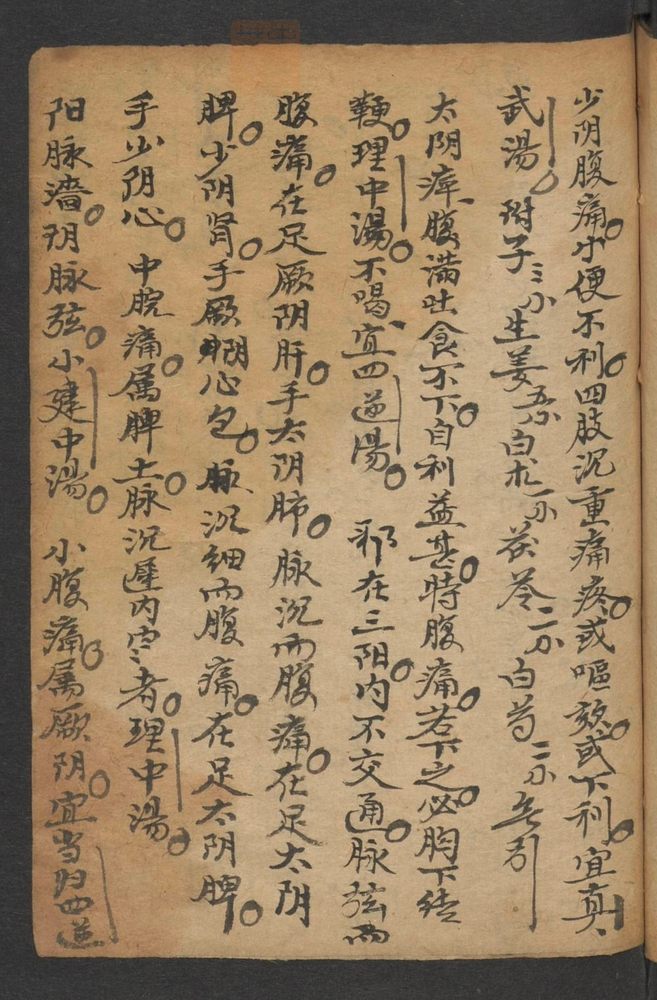 少阴腹痛。小便不利。四肢沉重痛疼。或呕欬。或下利。宜真
武湯。附子三分生姜五分白朮一分茯苓二分白芍二分無引
太阴瘴、腹满吐食不下。自利益甚。時腹痛。若下之。必胸下结
鞕。理中湯。不喝、宜四逆湯。邪在三阳。内不交通。脉弦而
腹痛。在足厥阴肝。手太阴肺。脉沉而腹痛。在足太阴
脾。少阴肾。手厥阴心包。脉沉细而腹痛。在足太阴脾。
手少阴心。中脘痛。属脾土。脉沉遲内寒者。理中湯。
阳脉濇。阴脉弦。小建中湯。小腹痛。属厥阴。宜当归四逆